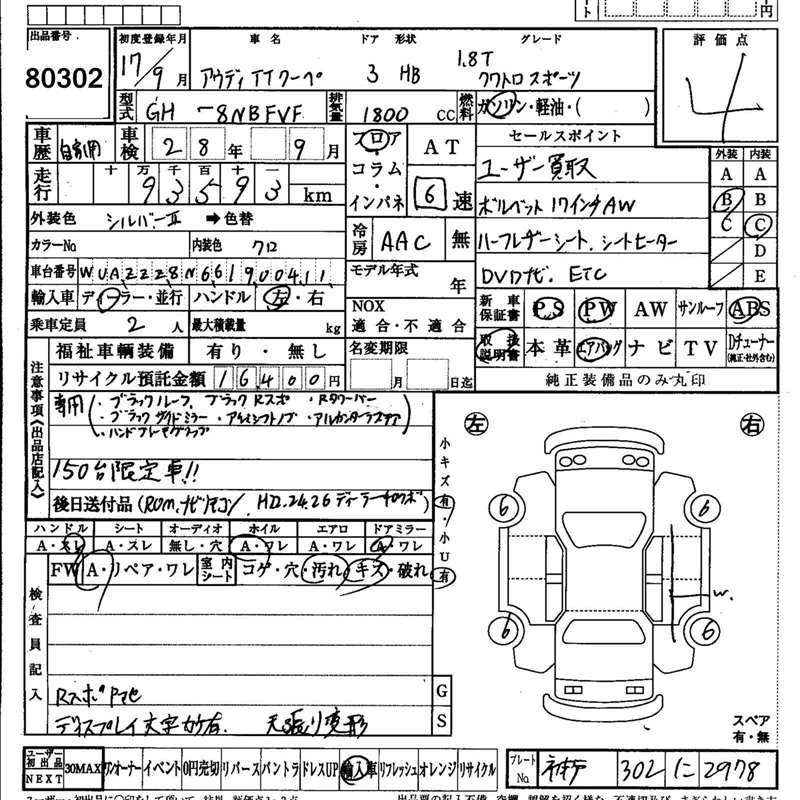 円
出品番号 初度登録年月 車名 ドア 形状 グレード 評価点
80302 17/9月 アウディTTクーペ 3 HB 1.8T クワトロスポーツ 4
型式 GH-8NBFVF 排気量 1800 CC 燃料 ガソリン・軽油・( )
車歴 自家用 車検 28年 9月 フロア・コラム・インパネ AT 6速
セールスポイント
外装 内装
A A
B B
C C
D
E
走行 十万千百十一
93593 km
ユーザー買取
ボルベット 17インチAW
ハーフレザーシート、シートヒーター
DVDナビ、ETC
外装色 シルバーII ➡色替
カラーNo 内装色 クロ
冷房 AAC 無
車台番号 WUAZZZ8N661900411
モデル年式 年
輸入車 ディーラー・並行 ハンドル 左・右
NOX 適合・不適合
乗車定員 2人 最大積載量 kg
新車保証書 PS PW AW サンルーフ ABS
取扱説明書 本革 エアバッグ ナビ TV Dチューナー(純正・社外含む)
純正装備品のみ丸印
福祉車輌装備 有り・無し 名変期限
リサイクル預託金額 16400円 月 日迄
注意事項《出品店記入》
専用 ・ブラックルーフ、ブラックRスポ ・Rタワーバー
・ブラックサイドミラー ・アルミシフトノブ ・アルカンターラステア
・ハンドブレーキグリップ
150台限定車!!
後日送付品(ROM、ナビリモコン
小キズ有・小U有
左 右
ハンドル シート オーディオ ホイル エアロ ドアミラー
A・スレ A・スレ 無し・穴 A・ワレ A・ワレ A・ワレ
FW A・リペア・ワレ 室内シート コゲ・穴・汚れ・キズ・破れ
検査員記入
6 6
W
6 6
Rスポ Pマセ
ディスプレイ文字カケ有、天張り変形
G
S
スペア
有・無
ユーザー初出品NEXT 30MAX ワンオーナー イベント 0円売切 リバース バントラ ドレスUP 輸入車 リフレッシュ オレンジ リサイクル
プレートNo 302 に 2978